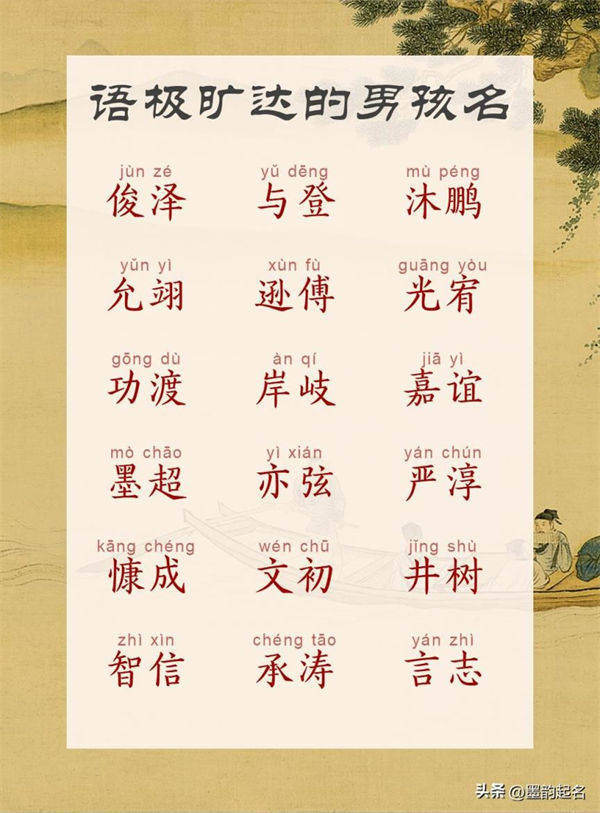 语极旷达的男孩名
jùn zé yǔ dēng mù péng
俊泽 与登 沐鹏
yǔn yì xùn fù guāng yòu
允翊 逊傅 光宥
gōng dù àn qí jiā yì
功渡 岸岐 嘉谊
mò chāo yì xián yán chún
墨超 亦弦 严淳
kāng chéng wén chū jǐng shù
慷成 文初 井树
zhì xìn chéng tāo yán zhì
智信 承涛 言志
头条 @墨韵起名